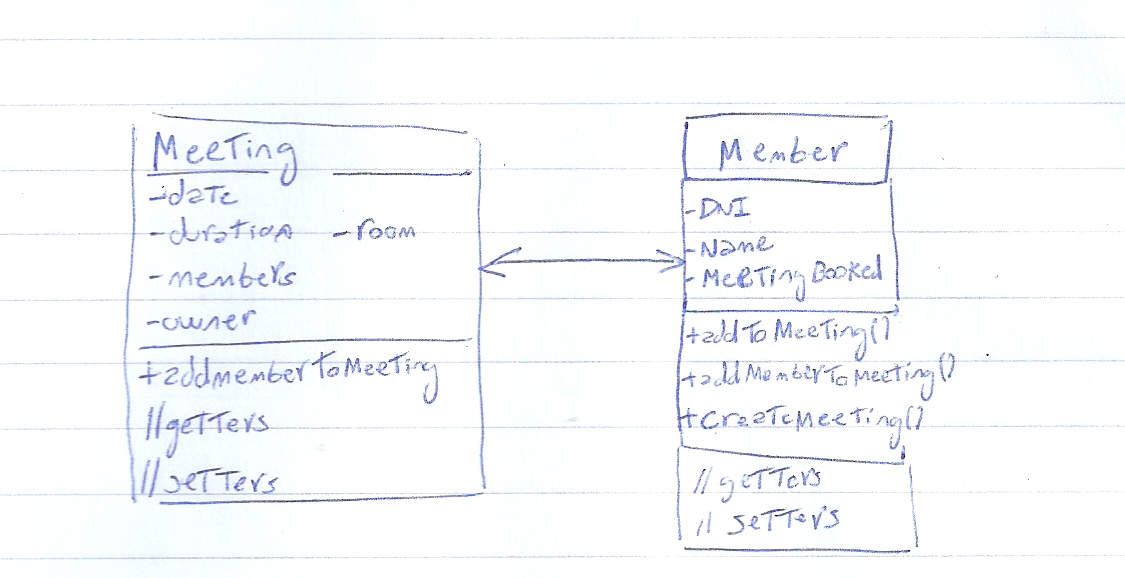 Meeting
-date
-duration -room
-members
-owner
+addmemberToMeeting
//getters
//setters
Member
-DNI
-Name
-MeetingBooked
+addToMeeting()
+addMemberToMeeting()
+CreateMeeting()
//getters
// setters